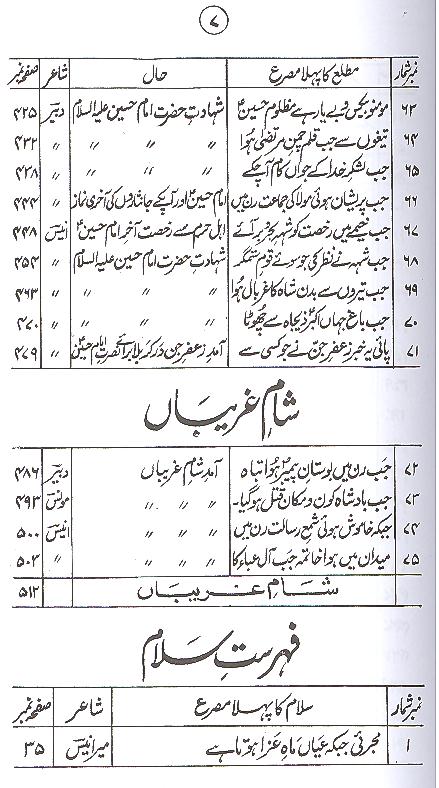 ۷
نمبر شمار مطلع کا پہلا مصرع حال شاعر صفحہ نمبر
۶۳ مومنو بیکس و بے یار ہے مظلوم حسینؑ شہادتِ حضرت امام حسین علیہ السلام دبیرؔ ۴۲۵
۶۴ تیغوں سے جب قلم چمنِ مرتضیٰ ہوا " " " " ۴۳۲
۶۵ جب لشکرِ خدا کے جواں کام آچکے " " " " ۴۳۸
۶۶ جب پریشان ہوئی مولا کی جماعت رن میں امام حسینؑ اور آپکے جانثاروں کی آخری نماز " ۴۴۴
۶۷ جب خیمے میں رخصت کو شہِ بحر و بر آئے اہل حرم سے رخصت آخر امام حسینؑ انیسؔ ۴۴۸
۶۸ جب شہ نے نظر کی جو سوئے قومِ ستمگر شہادتِ حضرت امام حسین علیہ السلام " ۴۵۴
۶۹ جب تیروں سے بدن شاہ کا غربال ہوا " " " " ۴۶۳
۷۰ جب باغِ جہاں اکبرِ ذیجاہ سے چھوٹا " " " " ۴۷۰
۷۱ پائی یہ خبر زعفرِ جنّ نے جو کسی سے آمد زعفر جن در کربلا برائے نصرت امام حسینؑ " ۴۷۹
شامِ غریباں
۷۲ جب رن میں بوستانِ پیمبرؐ ہوا تباہ آمد شامِ غریباں دبیرؔ ۴۸۶
۷۳ جب بادشاہِ کون و مکاں قتل ہو گیا۔ " " " مونسؔ ۴۹۳
۷۴ جبکہ خاموش ہوئی شمعِ رسالت رن میں " " " انیسؔ ۵۰۰
۷۵ میدان میں ہوا خاتمہ جب آلِ عباء کا " " " " ۵۰۳
شامِ غریباں ۵۱۲
فہرستِ سلام
نمبر شمار سلام کا پہلا مصرع شاعر صفحہ نمبر
۱ مجرئی جبکہ عیاں ماہِ عزا ہوتا ہے میر انیسؔ ۳۵